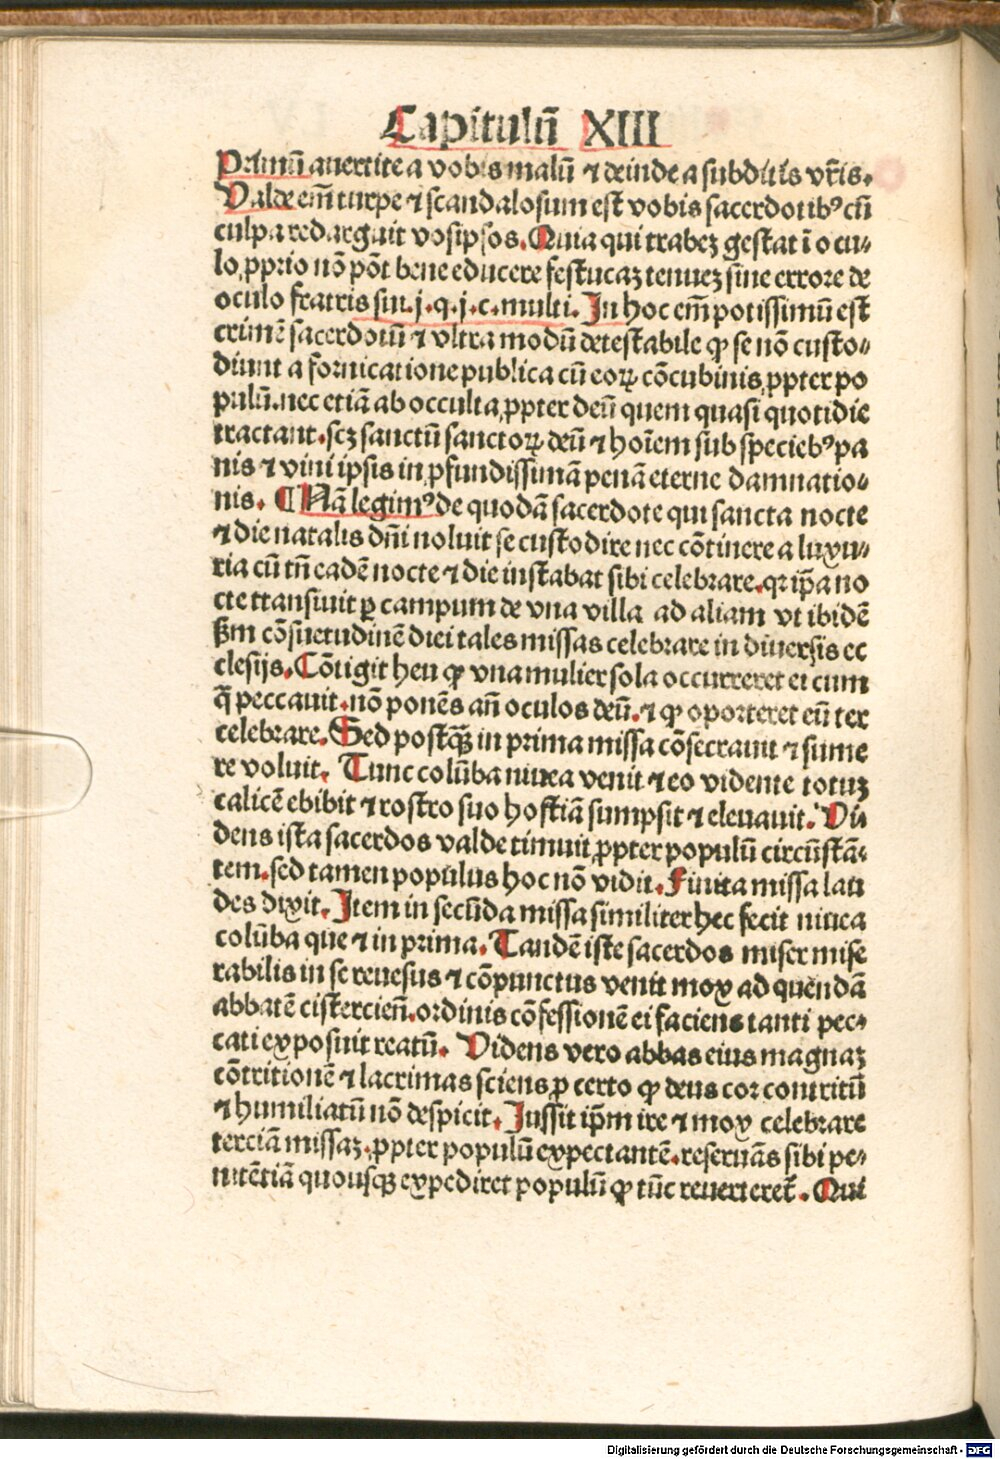 Capitulū XIII
Primū auertite a vobis malū ⁊ deinde a subditis vr̄is.
Valde em̄ turpe ⁊ scandalosum est vobis sacerdotibꝰ cū
culpa redarguit vosipsos. Quia qui trabeꝫ gestat ī ocu⸗
lo ꝓprio nō pōt bene educere festucaꝫ tenueꝫ sine errore de
oculo fratris sui. j. q. j. c. multi. In hoc em̄ potissimū est
crimē sacerdotū ⁊ vltra modū detestabile ꝙ se nō custo⸗
diunt a fornicatione publica cū eoꝝ cōcubinis ꝓpter po
pulū. nec etiā ab occulta ꝓpter deū quem quasi quotidie
tractant. scꝫ sanctū sanctoꝝ deū ⁊ hoīem sub speciebꝰ pa
nis ⁊ vini ipsis in ꝓfundissimā penā eterne damnatio⸗
nis. ¶ Nā legimꝰ de quodā sacerdote qui sancta nocte
⁊ die natalis dn̄i noluit se custodire nec cōtinere a luxu⸗
ria cū tn̄ eadē nocte ⁊ die instabat sibi celebrare. qꝛ ip̄a no
cte transiuit ꝑ campum de vna villa ad aliam vt ibidē
ẜm cōsuetudinē diei tales missas celebrare in diuersis ec
clesijs. Cōtigit heu ꝙ vna mulier sola occurreret ei cum
q̄ peccauit. nō ponēs an̄ oculos deū. ⁊ ꝙ oporteret eū ter
celebrare. Sed postꝙ̄ in prima missa cōsecrauit ⁊ sume
re voluit. Tunc colūba niuea venit ⁊ eo vidente totuꝫ
calicē ebibit ⁊ rostro suo hostiā sumpsit ⁊ eleuauit. Vi⸗
dens ista sacerdos valde timuit ꝓpter populū circūstā⸗
tem. sed tamen populus hoc nō vidit. Finita missa lau
des dixit. Item in secūda missa similiter hec fecit niuea
colūba que ⁊ in prima. Tandē iste sacerdos miser mise
rabilis in se reuesus ⁊ cōpunctus venit mox ad quendā
abbatē cistercien̄. ordinis cōfessionē ei faciens tanti pec⸗
cati exposuit reatū. Videns vero abbas eius magnaꝫ
cōtritionē ⁊ lacrimas sciens ꝓ certo ꝙ deus cor contritū
⁊ humiliatū nō despicit. Jussit ip̄m ire ⁊ mox celebrare
terciā missaꝫ. ꝓpter populū expectantē. reseruās sibi pe⸗
nitētiā quousqꝫ expediret populū ꝙ tūc reuerteret̄. Qui
Digitalisierung gefördert durch die Deutsche Forschungsgemeinschaft - DFG